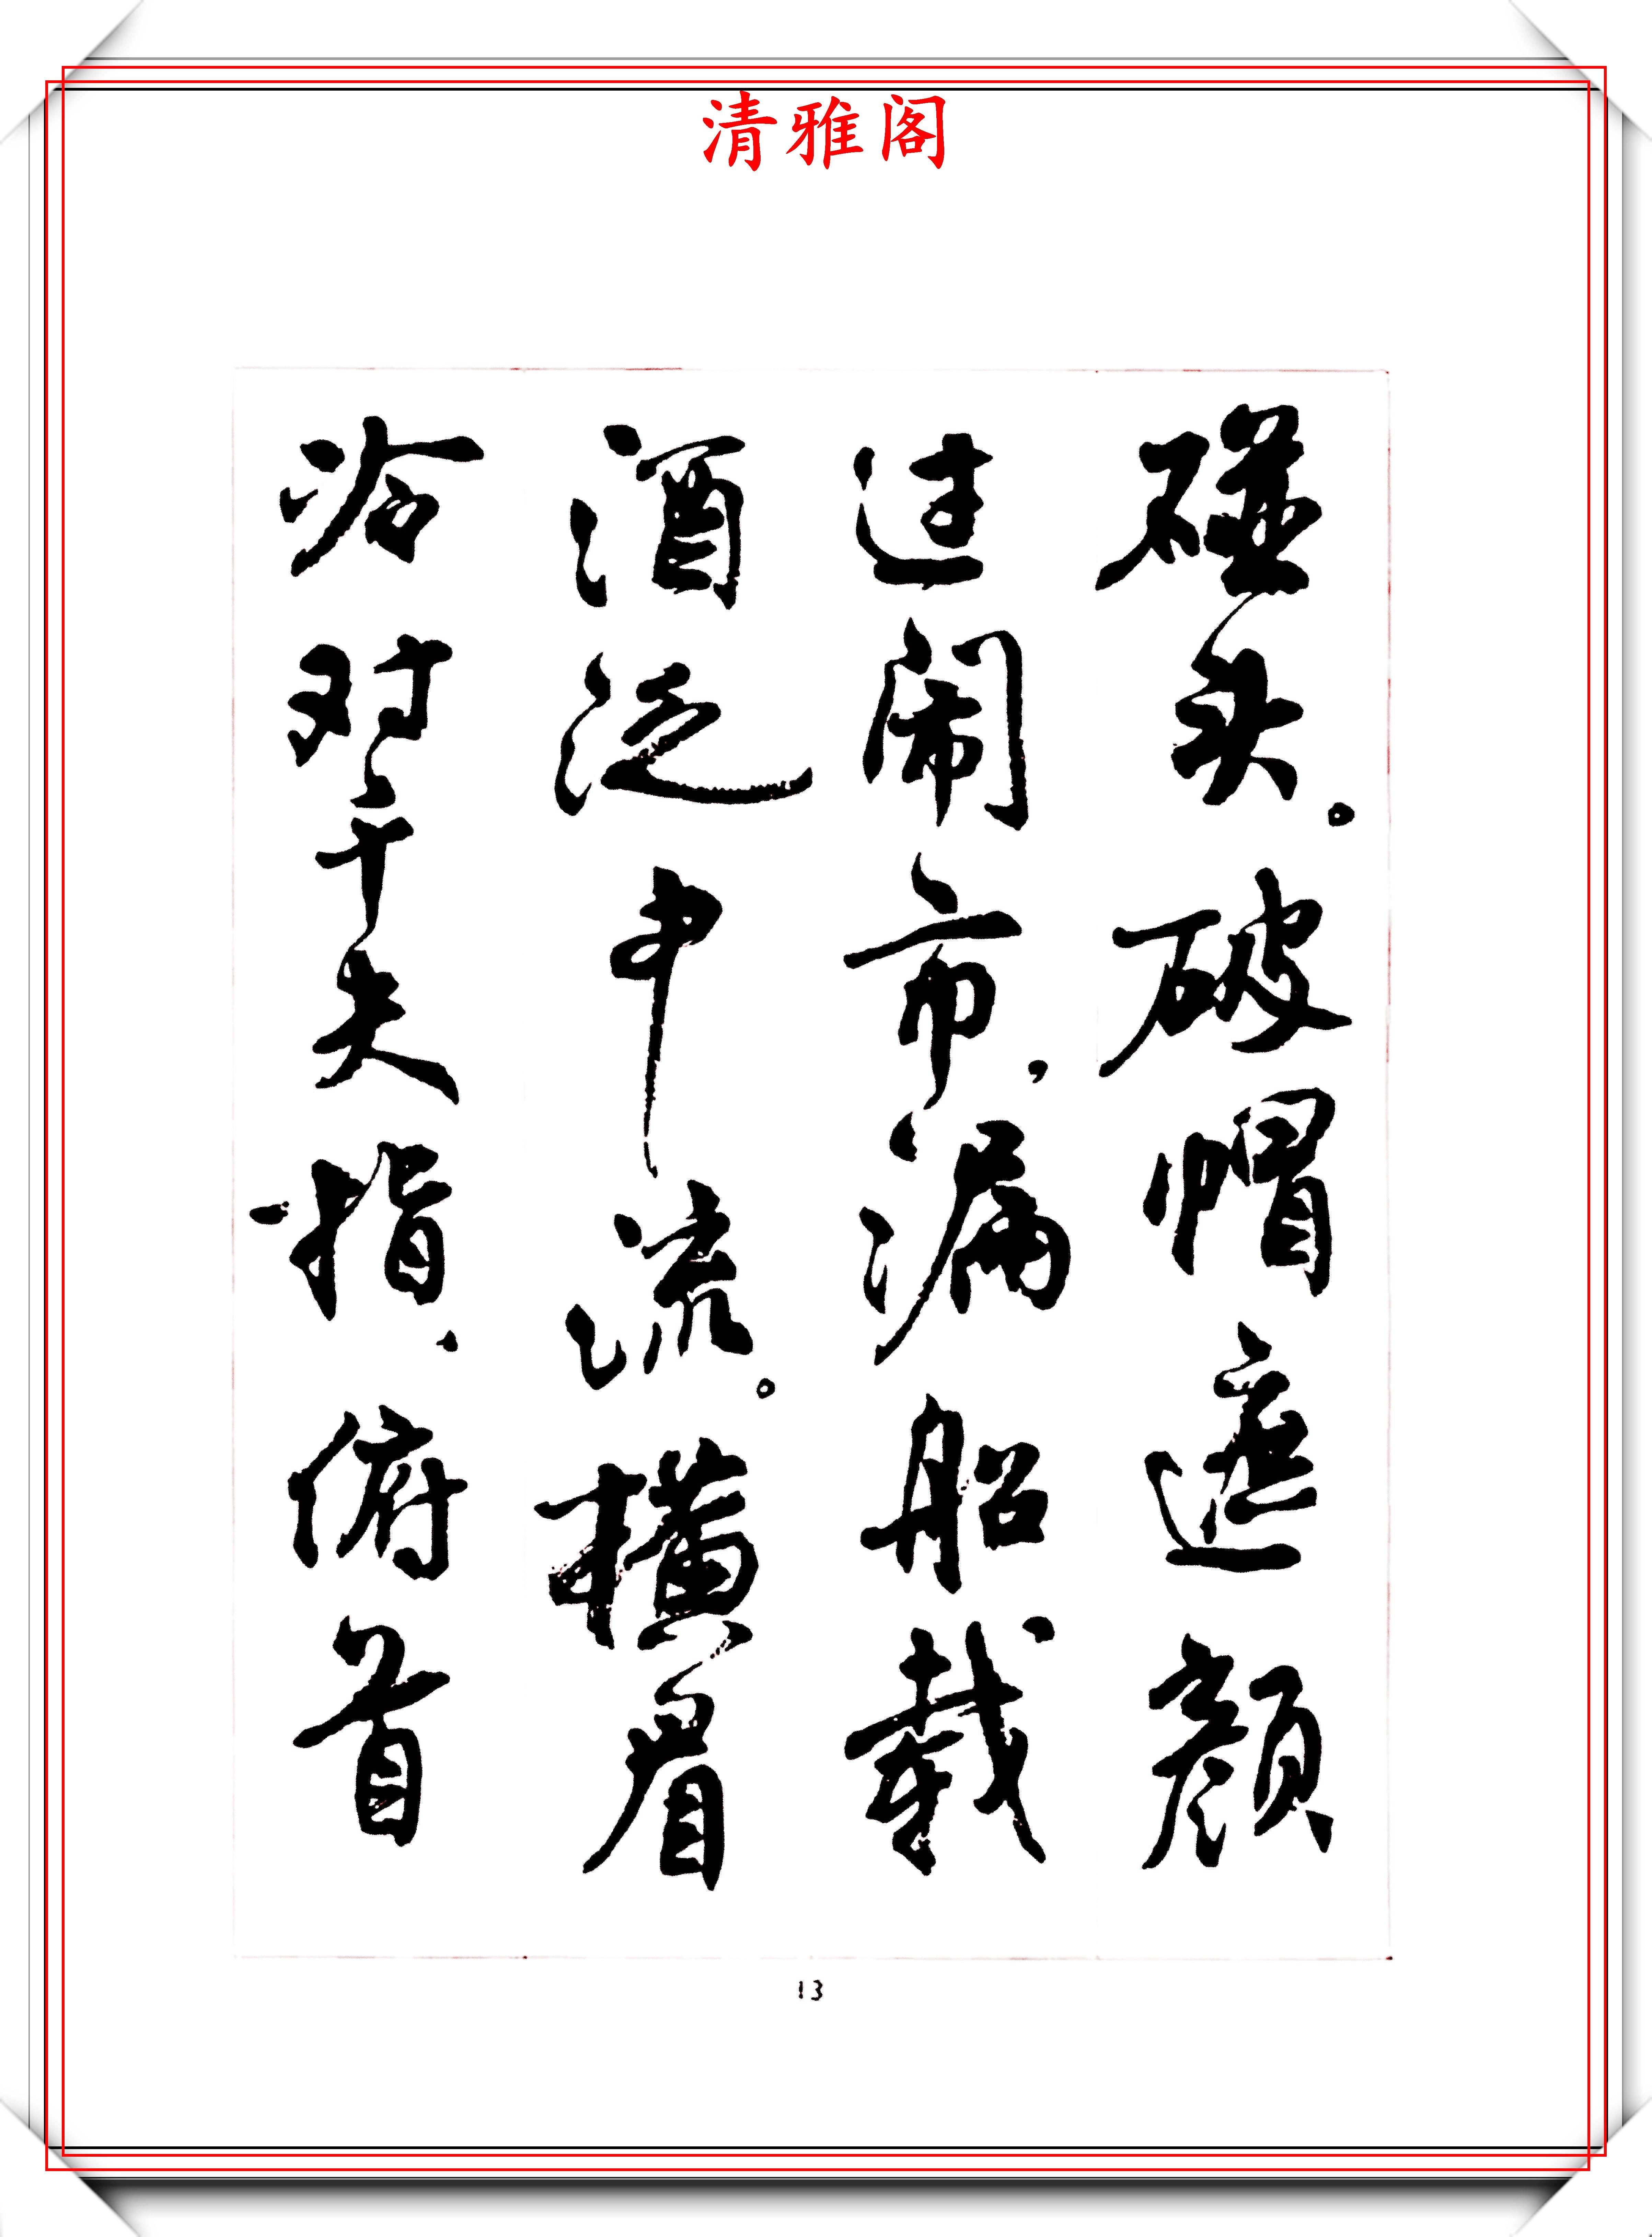 清雅阁
碰头。破帽遮颜
过闹市,漏船载
酒泛中流。横眉
冷对千夫指,俯首
13